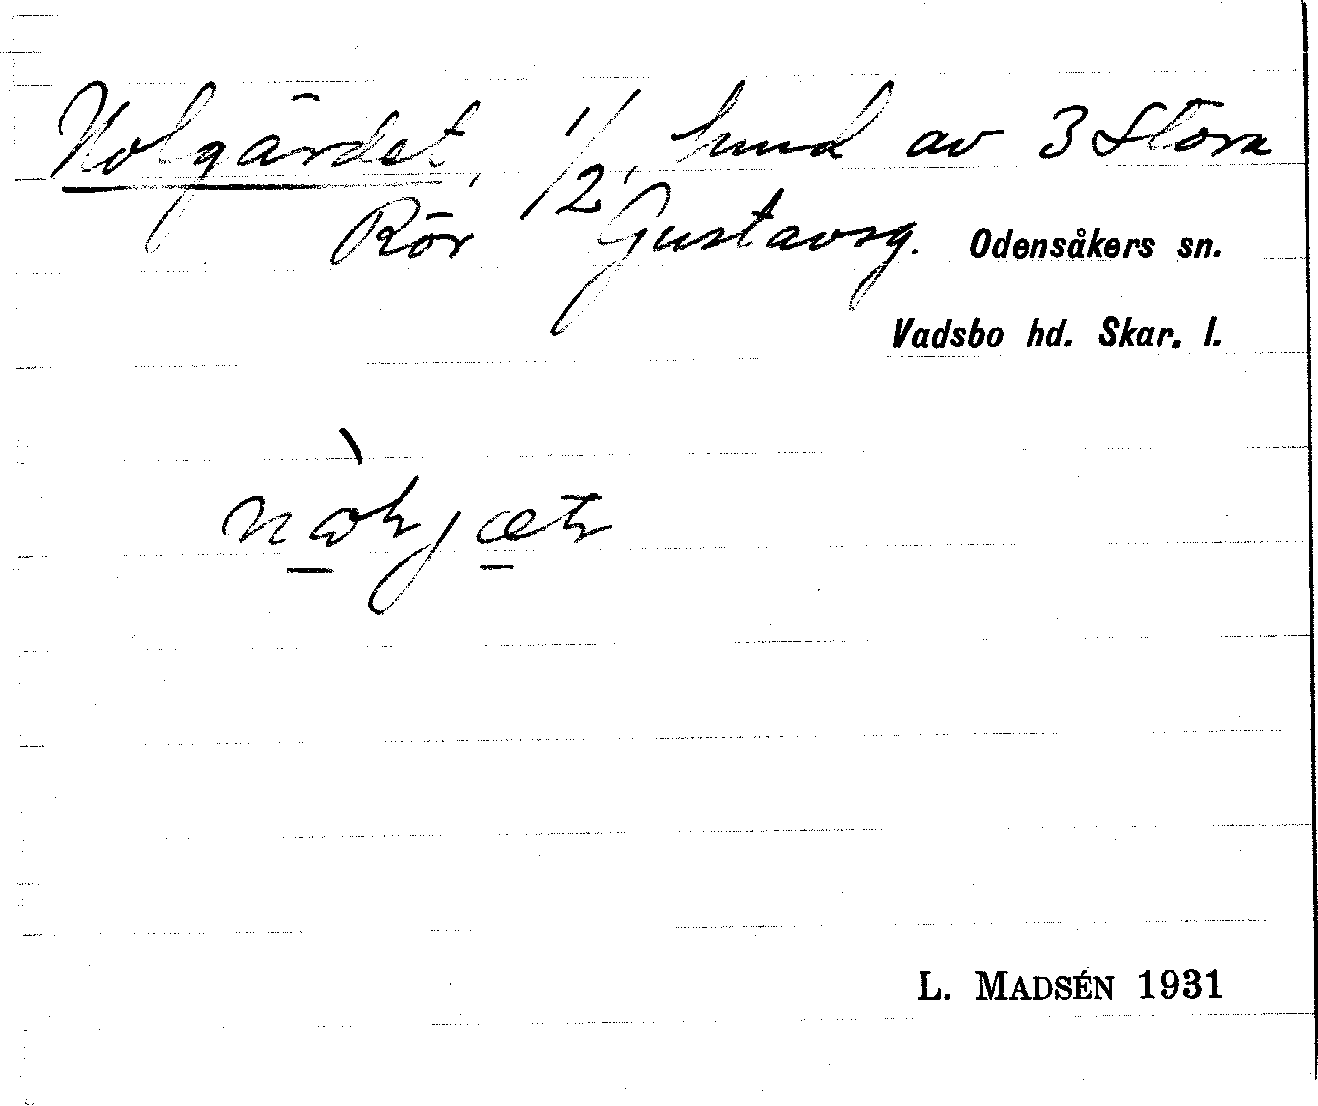 Nolgärdet, 1/2, hmd av 3 Stora
Rör Gustavsg. Odensåkers sn.
Vadsbo hd. Skar. l.
L. MADSÉN 1931